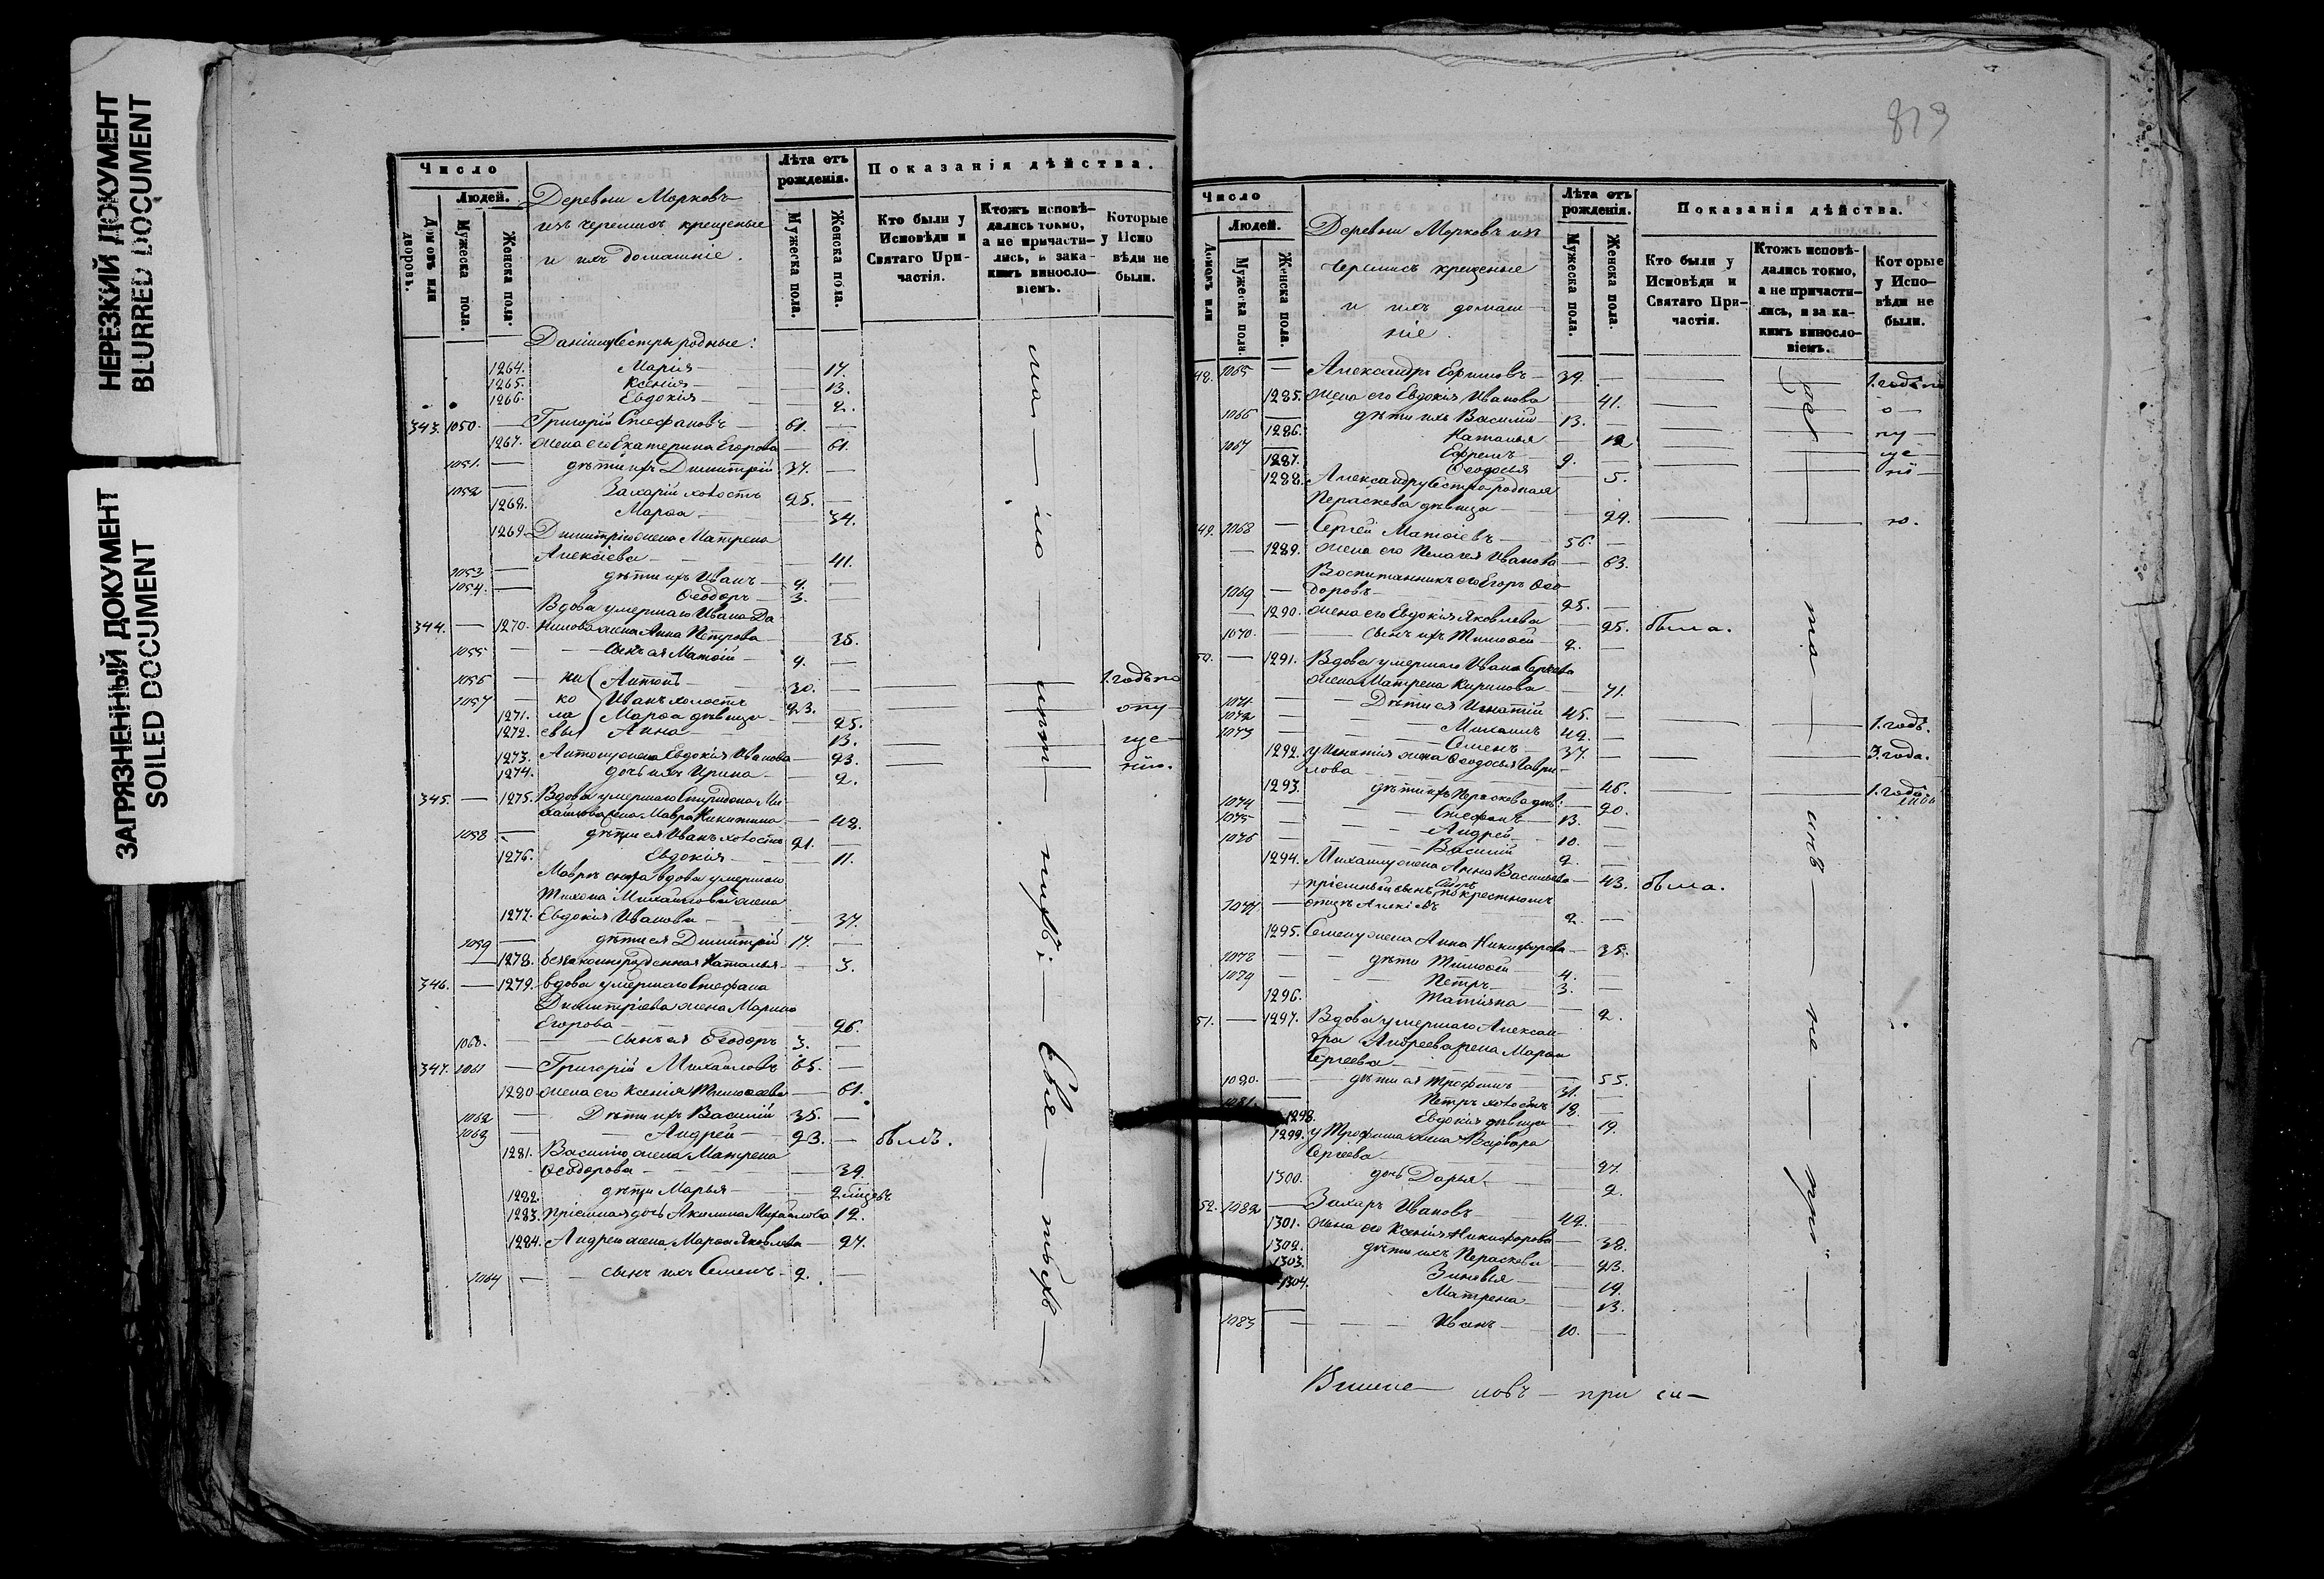 НЕРЕЗКИЙ ДОКУМЕНТ
BLURRED DOCUMENT
ЗАГРЯЗНЕННЫЙ ДОКУМЕНТ
SOILED DOCUMENT
Число
Людей.
Домовъ или дворовъ.
Мужеска пола.
Женска пола.
Деревни Морковъ
изъ черемисъ крещеные
и ихъ домашніе.
Лѣта отъ рожденія.
Мужеска пола.
Женска пола.
Показанія дѣйства.
Кто были у Исповѣди и Святаго Причастія.
Ктожъ исповѣдались токмо, а не причастились, и закакимъ винословіемъ.
Которые у Исповѣди не были.
Даніилу сестры родные:
1264. Марія — 17.
1265. Ксенія — 13.
1266. Евдокія — 2.
343. 1050. — Григорій Стефановъ — 61. —
1267. жена его Екатерина Егорова — 61.
1051. — дѣти ихъ Димитрій 37. —
1052 — Захарій холостъ 25. —
1268. Марѳа — 34.
1269. Димитрію жена Матрена
Алексіева — 41.
1053 — дѣти ихъ Иванъ — 9. —
1054. — Ѳеодоръ — 3. —
Вдова умершаго Ивана Да
344. — 1270. нилова жена Анна Петрова — 35.
1055 — сынъ ея Матѳій — 9. —
1056 — ни Антонъ — 30. — 1. годъ по
1057 — ко Иванъ холостъ 23. — опу
1271. ла Марѳа дѣвица — 25.
1272. евы Анна — 13. — ще
1273. Антону жена Евдокія Иванова — 23. — нію.
1274. дочь ихъ Ирина — 2.
345. — 1275. Вдова умершаго Спиридона Ми
хайлова жена Мавра Никитина — 48.
1058 — дѣти ея Иванъ холостъ 21. —
1276. Евдокія — 11.
Маврѣ сноха вдова умершаго
Тихона Михайлова жена
1277. Евдокія Иванова — 37.
1059 — дѣти ея Димитрій 17. —
— 1278. незаконнорожденная Наталья — 3.
346. — 1279. вдова умершаго Стефана
Димитріева жена Марина
Егорова — 26.
1060. — сынъ ея Ѳеодоръ 3. —
347. 1061 — Григорій Михайловъ 65. —
1280. жена его Ксенія Тимоѳеева — 61.
1062 — Дѣти ихъ Василій 35. —
1063 — Андрей — 23. — былъ.
1281. Василію жена Матрена
Ѳеодорова — 39.
1282. дѣти Марья — 2 мѣсяц
1283. пріемная дочь Акилина Михайлова 12.
1284. Андрею жена Марѳа Яковлева — 27.
1064 — сынъ ихъ Семенъ 2. —
— Свя — тыхъ —
813
Число
Людей.
Домовъ или
Мужеска пола.
Женска пола.
Деревни Морковъ изъ
черемисъ крещеные
и ихъ домаш-
ніе.
Лѣта отъ рожденія.
Мужеска пола.
Женска пола.
Показанія дѣйства.
Кто были у Исповѣди и Святаго Причастія.
Ктожъ исповѣдались токмо, а не причастились, и за какимъ винословіемъ.
Которые у Исповѣди не были.
48. 1065 — Александръ — 39. — 1. годъ по
1285. жена его Евдокія Иванова — 41. — о —
1066 — дѣти ихъ Василій — 13. —
1286. Наталья — 12 — пу —
1067 Ефремъ — 9. — ще —
1287. Ѳеодосья — 5. — ні —
1288. Александру сестра родная
Параскева дѣвица — 29. — ю.
49. 1068 — Сергей Матѳіевъ — 56. —
— 1289. жена его Пелагея Иванова — 63.
Воспитанникъ его Егоръ Ѳео-
1069 — доровъ — 25. —
— 1290. жена его Евдокія Яковлева — 25. была.
1070. — сынъ ихъ Тимоѳей — 2. —
50. — 1291. Вдова умершаго Ивана Сергеева
жена Матрена Кирилова — 71.
1071 — Дѣти ея Игнатій 45. —
1072 — Михаилъ 42. — 1. годъ.
1073 — Семенъ — 37. —
1292. у Игнатія жена Ѳеодосья Гаври- 3. года.
лова — 46.
1293. дѣти ихъ Параскева дѣв: — 20. 1. годъ.
1074 — Стефанъ — 13. —
1075 — Андрей — 10. —
1076 — Василій — 2. —
1294. Михаилу жена Анна Васильева — 43. была.
+ пріемный сынъ по крестному
1077 — отцѣ Алексіевъ 2. —
1295. Семену жена Анна Никифорова — 35.
1078 — дѣти Тимоѳей — 4. —
1079 — Петръ — 3. —
1296. Татіяна — 2.
51. — 1297. Вдова умершаго Алексан-
дра Андреева жена Марѳа
Сергеева — 55.
1080. — дѣти ея Трофимъ — 31. —
1081. — Петръ холостъ 18. —
1298. Евдокія дѣвица — 19.
1299. у Трофима жена Варвара
Сергеева — 27.
1300. дочь Дарья — 2.
52. 1082 — Захаръ Ивановъ — 42. —
1301. жена его Ксенія Никифорова — 38.
1302. дѣти ихъ Параскева — 23.
1303. Зиновья — 19.
1304. Матрена — 13.
1083 — Иванъ — 10. —
— новъ — при си —